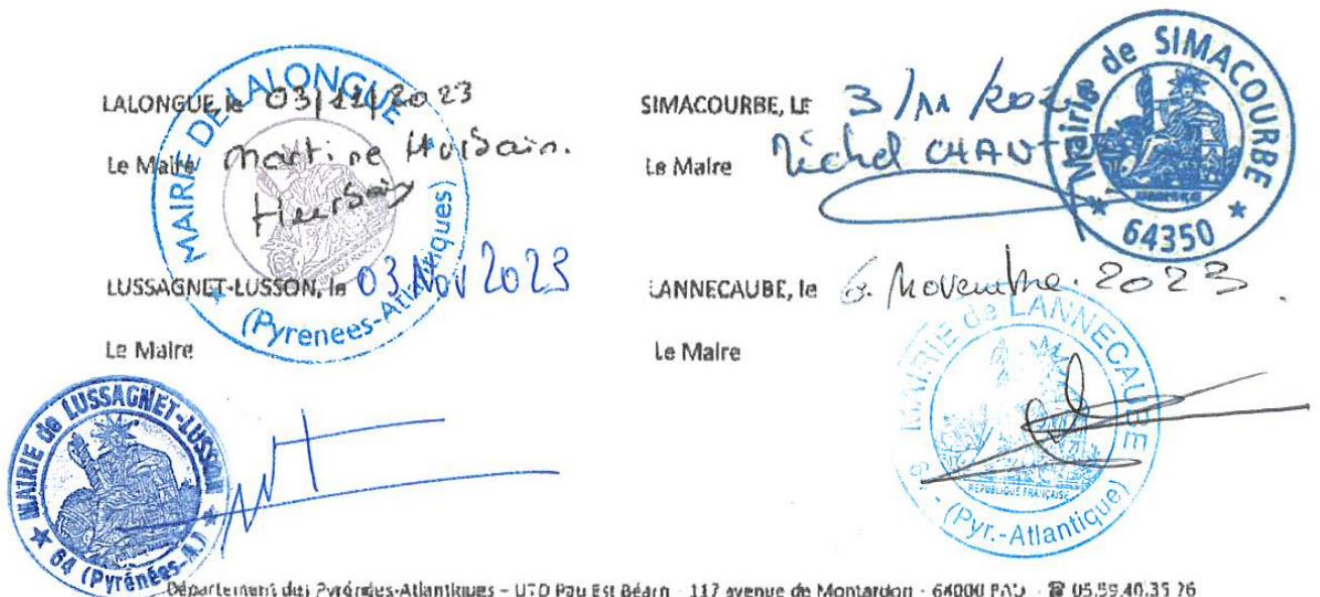 LALONGUE, le 03/11/2023
Le Maire Martine Hurbain.
MAIRIE DE LALONGUE
(Pyrenees-Atlantiques)
SIMACOURBE, LE 3/11/2023
Le Maire Michel CHAN
Mairie de SIMACOURBE
64350
LUSSAGNET-LUSSON, le 03 Nov 2023
Le Maire
MAIRIE de LUSSAGNET-LUSSON
64 (Pyrénées-A.)
LANNECAUBE, le 6 Novembre 2023.
Le Maire
MAIRIE de LANNECAUBE
REPUBLIQUE FRANÇAISE
(Pyr.-Atlantique)
Département des Pyrénées-Atlantiques – UTD Pau Est Béarn - 117 avenue de Montardon - 64000 PAU - ☎ 05.59.40.35.26